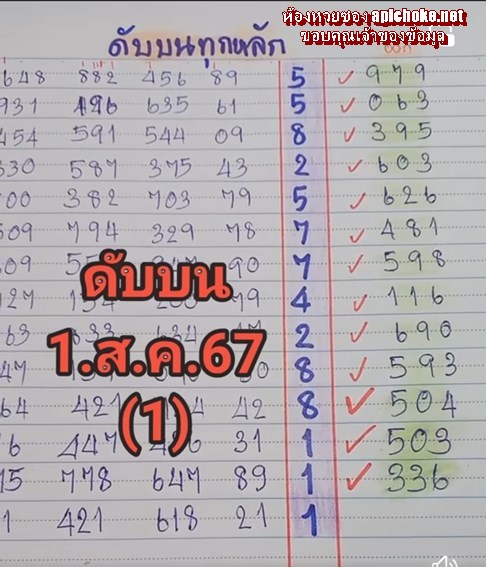 ห้องหวยของ aplchoke.net
ขอบคุณเจ้าของข้อมูล
ดับบนทุกหลัก
648 882 456 89 5 ✓ 979
931 496 635 61 5 ✓ 063
454 591 544 09 8 ✓ 395
330 587 375 43 2 ✓ 603
00 382 703 79 5 ✓ 626
509 794 329 78 7 ✓ 481
609 90 7 ✓ 598
127 79 4 ✓ 116
363 2 ✓ 690
47 8 ✓ 593
64 421 42 8 ✓ 504
6 447 31 1 ✓ 503
15 778 647 89 1 ✓ 336
1 421 618 21 1
ดับบน
1.ส.ค.67
(1)